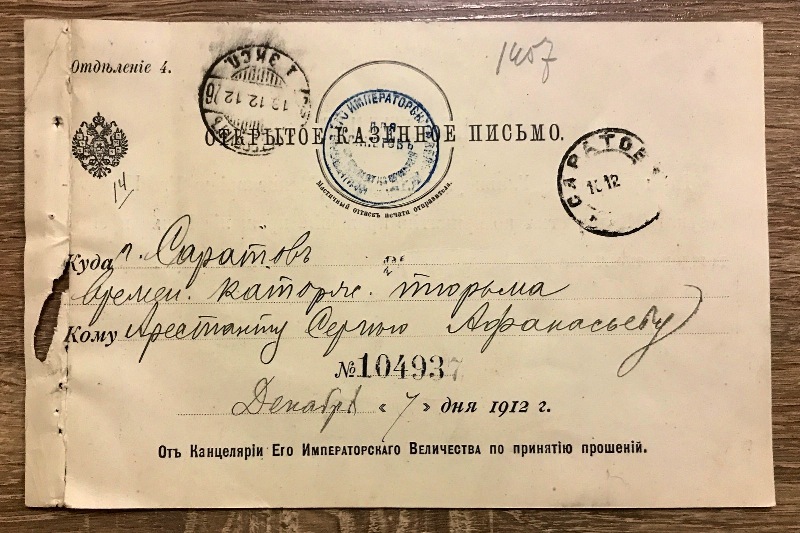 Отдѣленіе 4.
1407
12.12
ОТКРЫТОЕ КАЗЕННОЕ ПИСЬМО.
САРАТОВ
12
14
Мастичный оттискъ печати отправителя.
Куда г. Саратовъ
времен. каторж. тюрьма
Кому Арестанту Сергѣю Афанасьеву
№ 104937
Декабря «7» дня 1912 г.
Отъ Канцеляріи Его Императорскаго Величества по принятію прошеній.